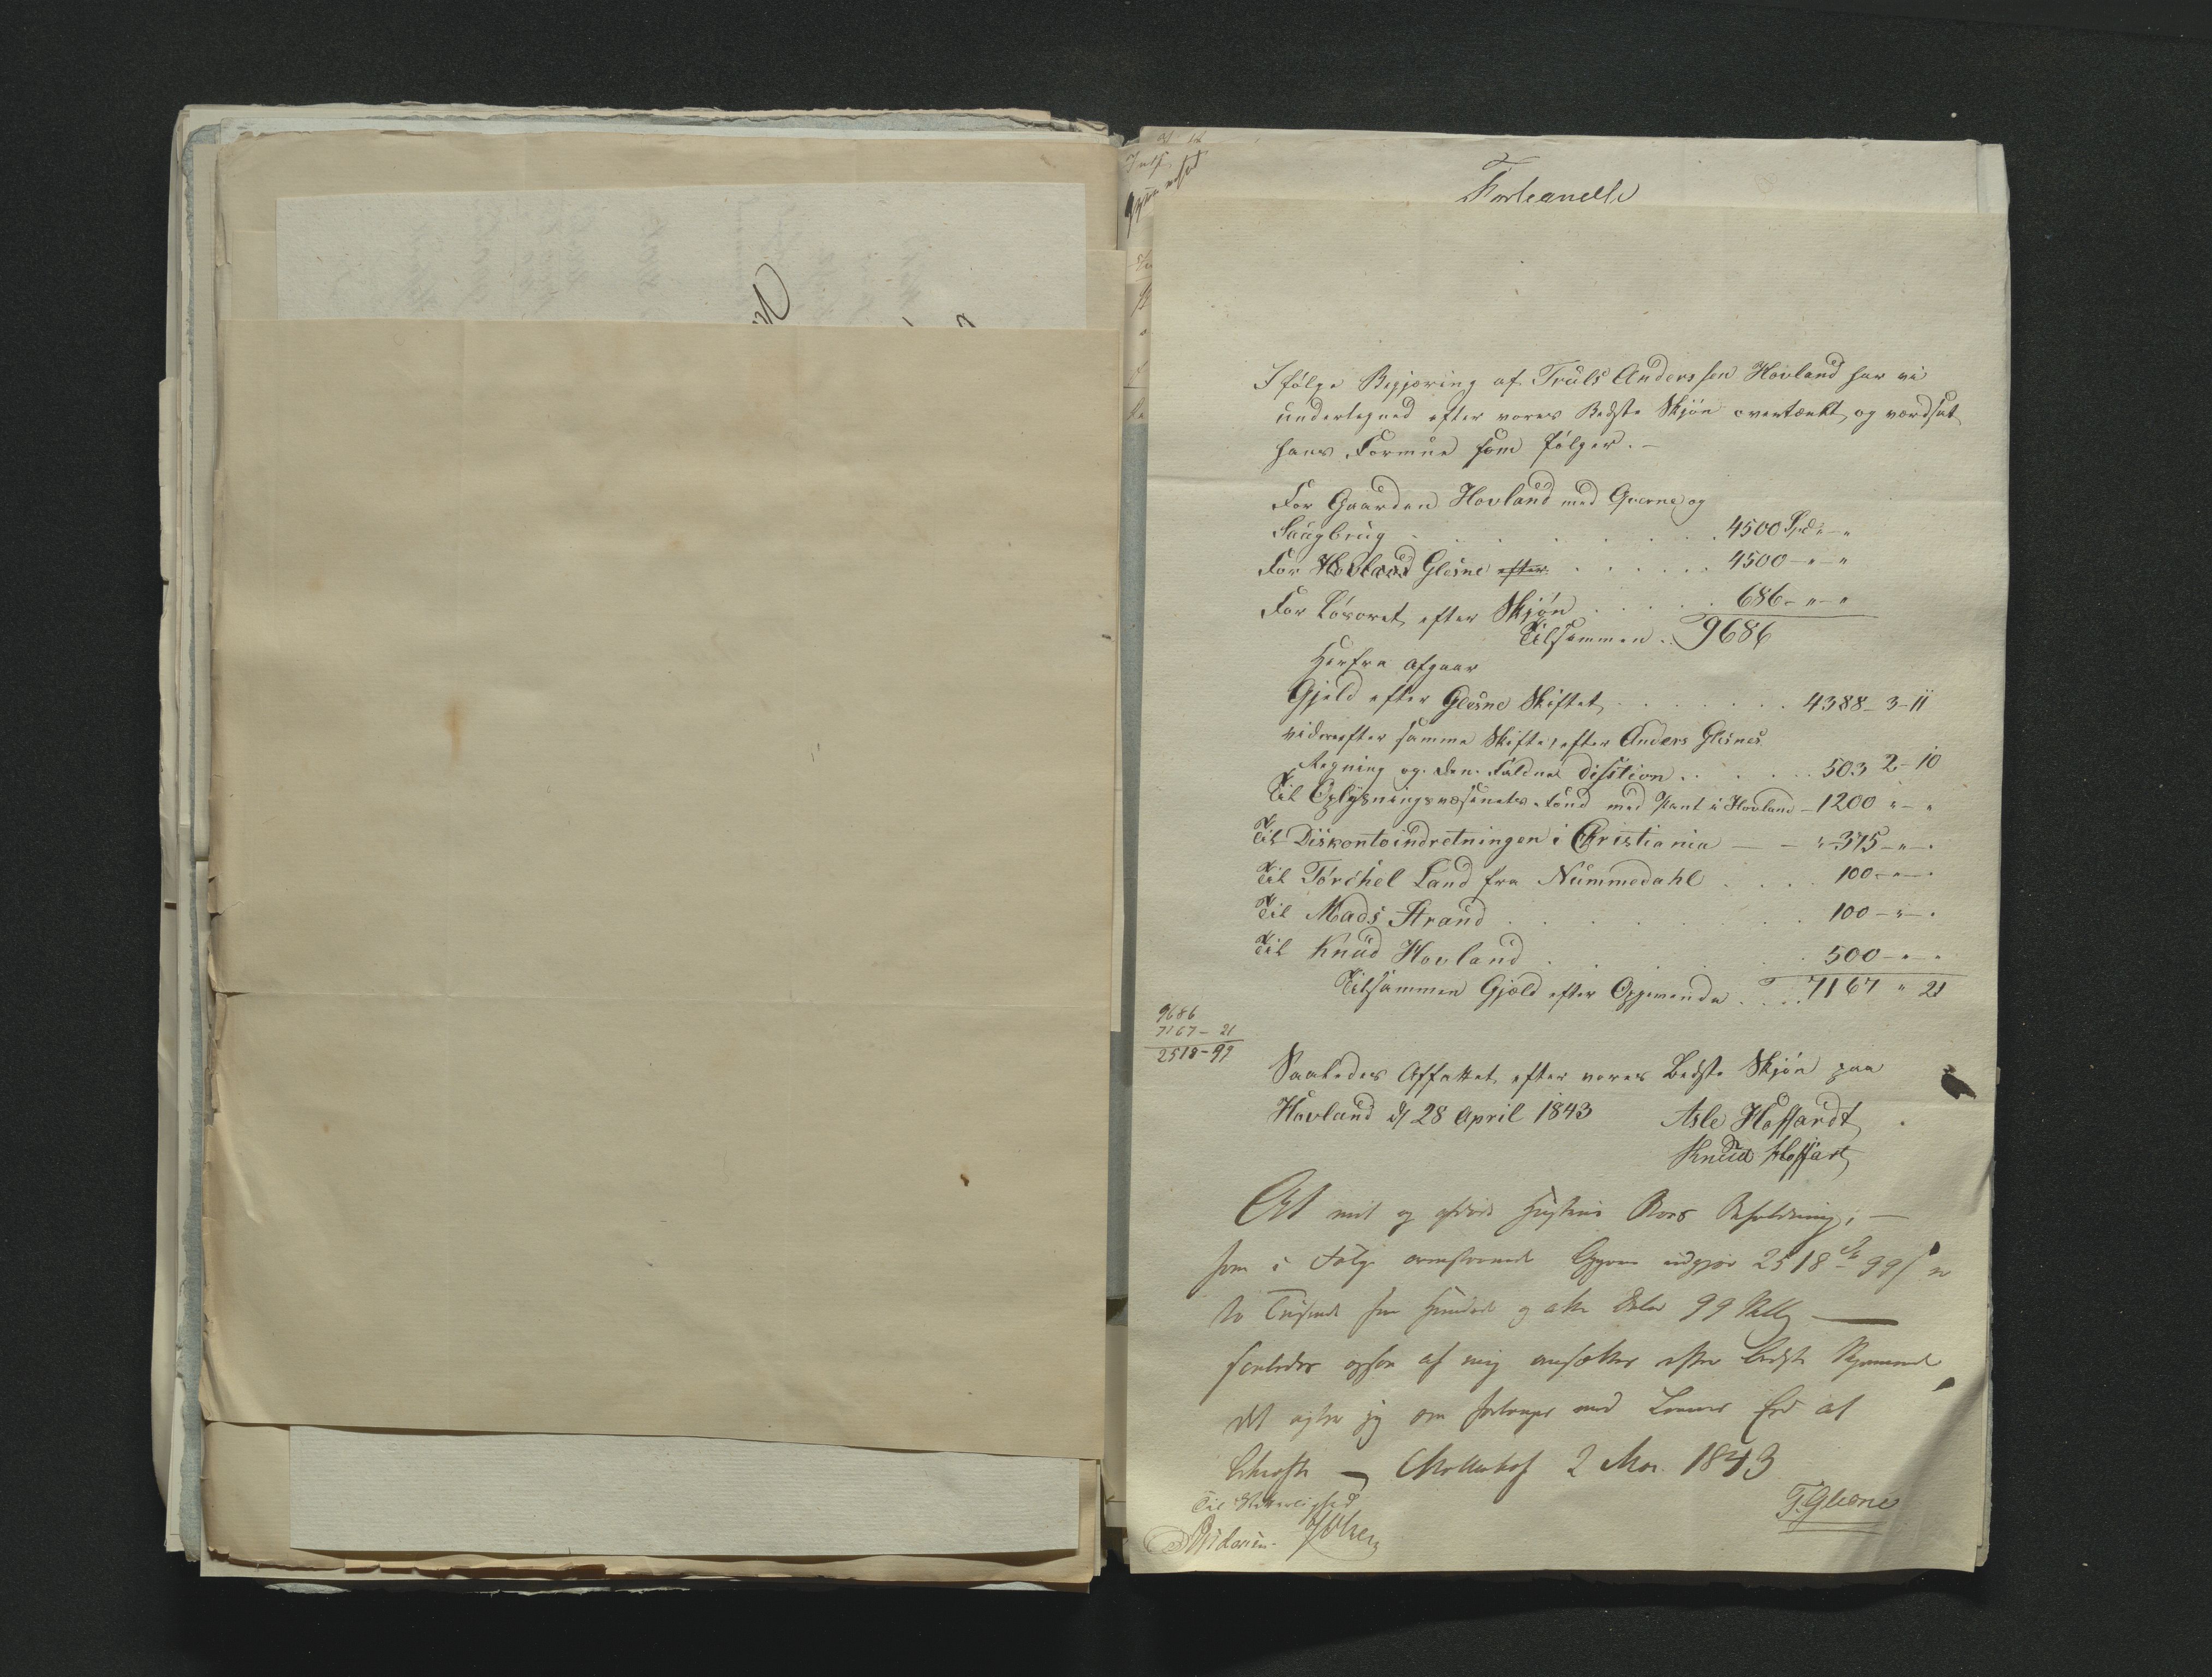 Ifølge Begjæring af Truls Anderssen Hovland har vi
undertegned efter vores Bedste Skjøn overtænkt og værdsat
hans Formue som følger. –
For Gaarden Hovland med Qverne og
Saugbrug . . . . . . 4500 Spd " – "
For Hovland Glesne efter . . . . . 4500 – " – "
For Løsøret efter Skjøn . . . . 686 – " – "
Tilsammen . . 9686
Herfra Afgaar
Gjeld efter Glesne Skiftet . . . . . . 4388 – 3 – 11
videre efter samme Skifte, efter Anders Glesnes
Regning og den faldne . . . . 503 2 – 10
Til Oplysningsvæsenets Fond med Pant i Hovland – 1200 " – "
Til Diskontoindretningen i Christiania — – " – 375 – " – "
Til Torchel Land fra Nummedahl . . . . 100 – " – "
Til Mads Strand . . . . . . 100 – " – "
Til Knud Hovland . . . . . . 500 – " – "
Tilsammen Gjæld efter Opgivende . . . . 7167 " 21
9686
7167 – 21
2518 – 99
Saaledes Affattet efter vores Bedste Skjøn paa
Hovland d 28 April 1843 Asle Hoffardt
Knud Hoffart
At mit og Hustrues Boes Beholdning, —
som i Følge ovenstaaende Opgave udgjør 2518 99
to Tusinde fem Hundrede og atten Daler 99 —
saaledes af mig ansættes efter bedste
det jeg om forlanges med Ed at
bekræfte – 2 Mai 1843
T. Glesne
Til Vitterlighed